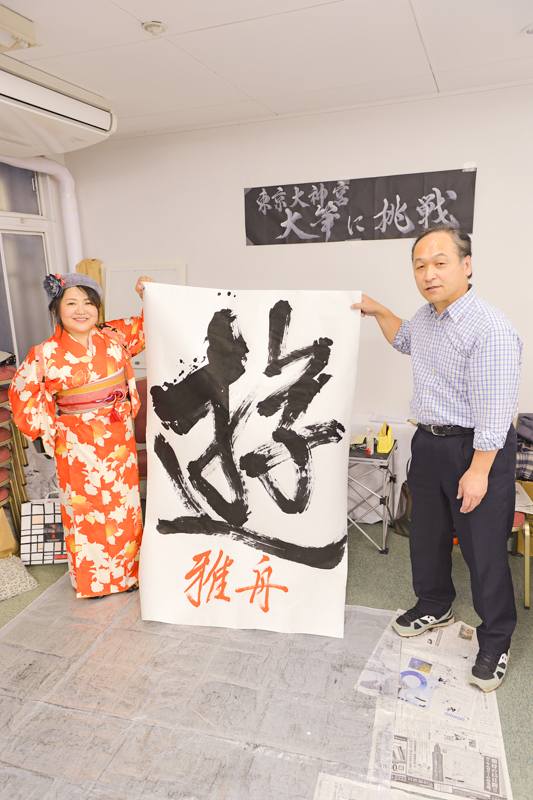 東京大神宮
大筆に挑戦
遊
雅舟